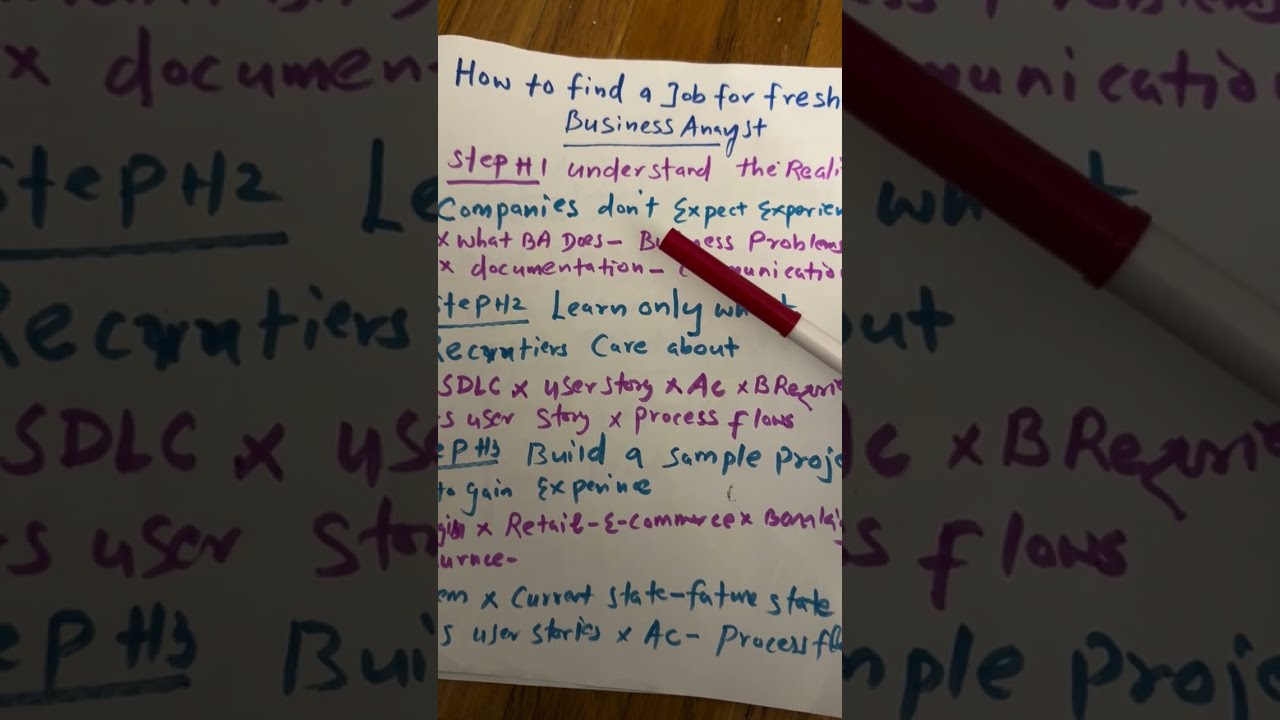 How to find a Job for fresh
Business Anayst
Step #1 understand the Reali
Companies don't Expect Experien
x what BA Does - Business Problems
x documentation - Communicatio
Step #2 Learn only what
Recruitiers Care about
SDLC x user story x Ac x B Requri
s user story x Process flows
ep #3 Build a sample proje
to gain Experince
x Retail - E-commerce x
urnce-
em x Current state - future state
s user stories x AC - Process fl